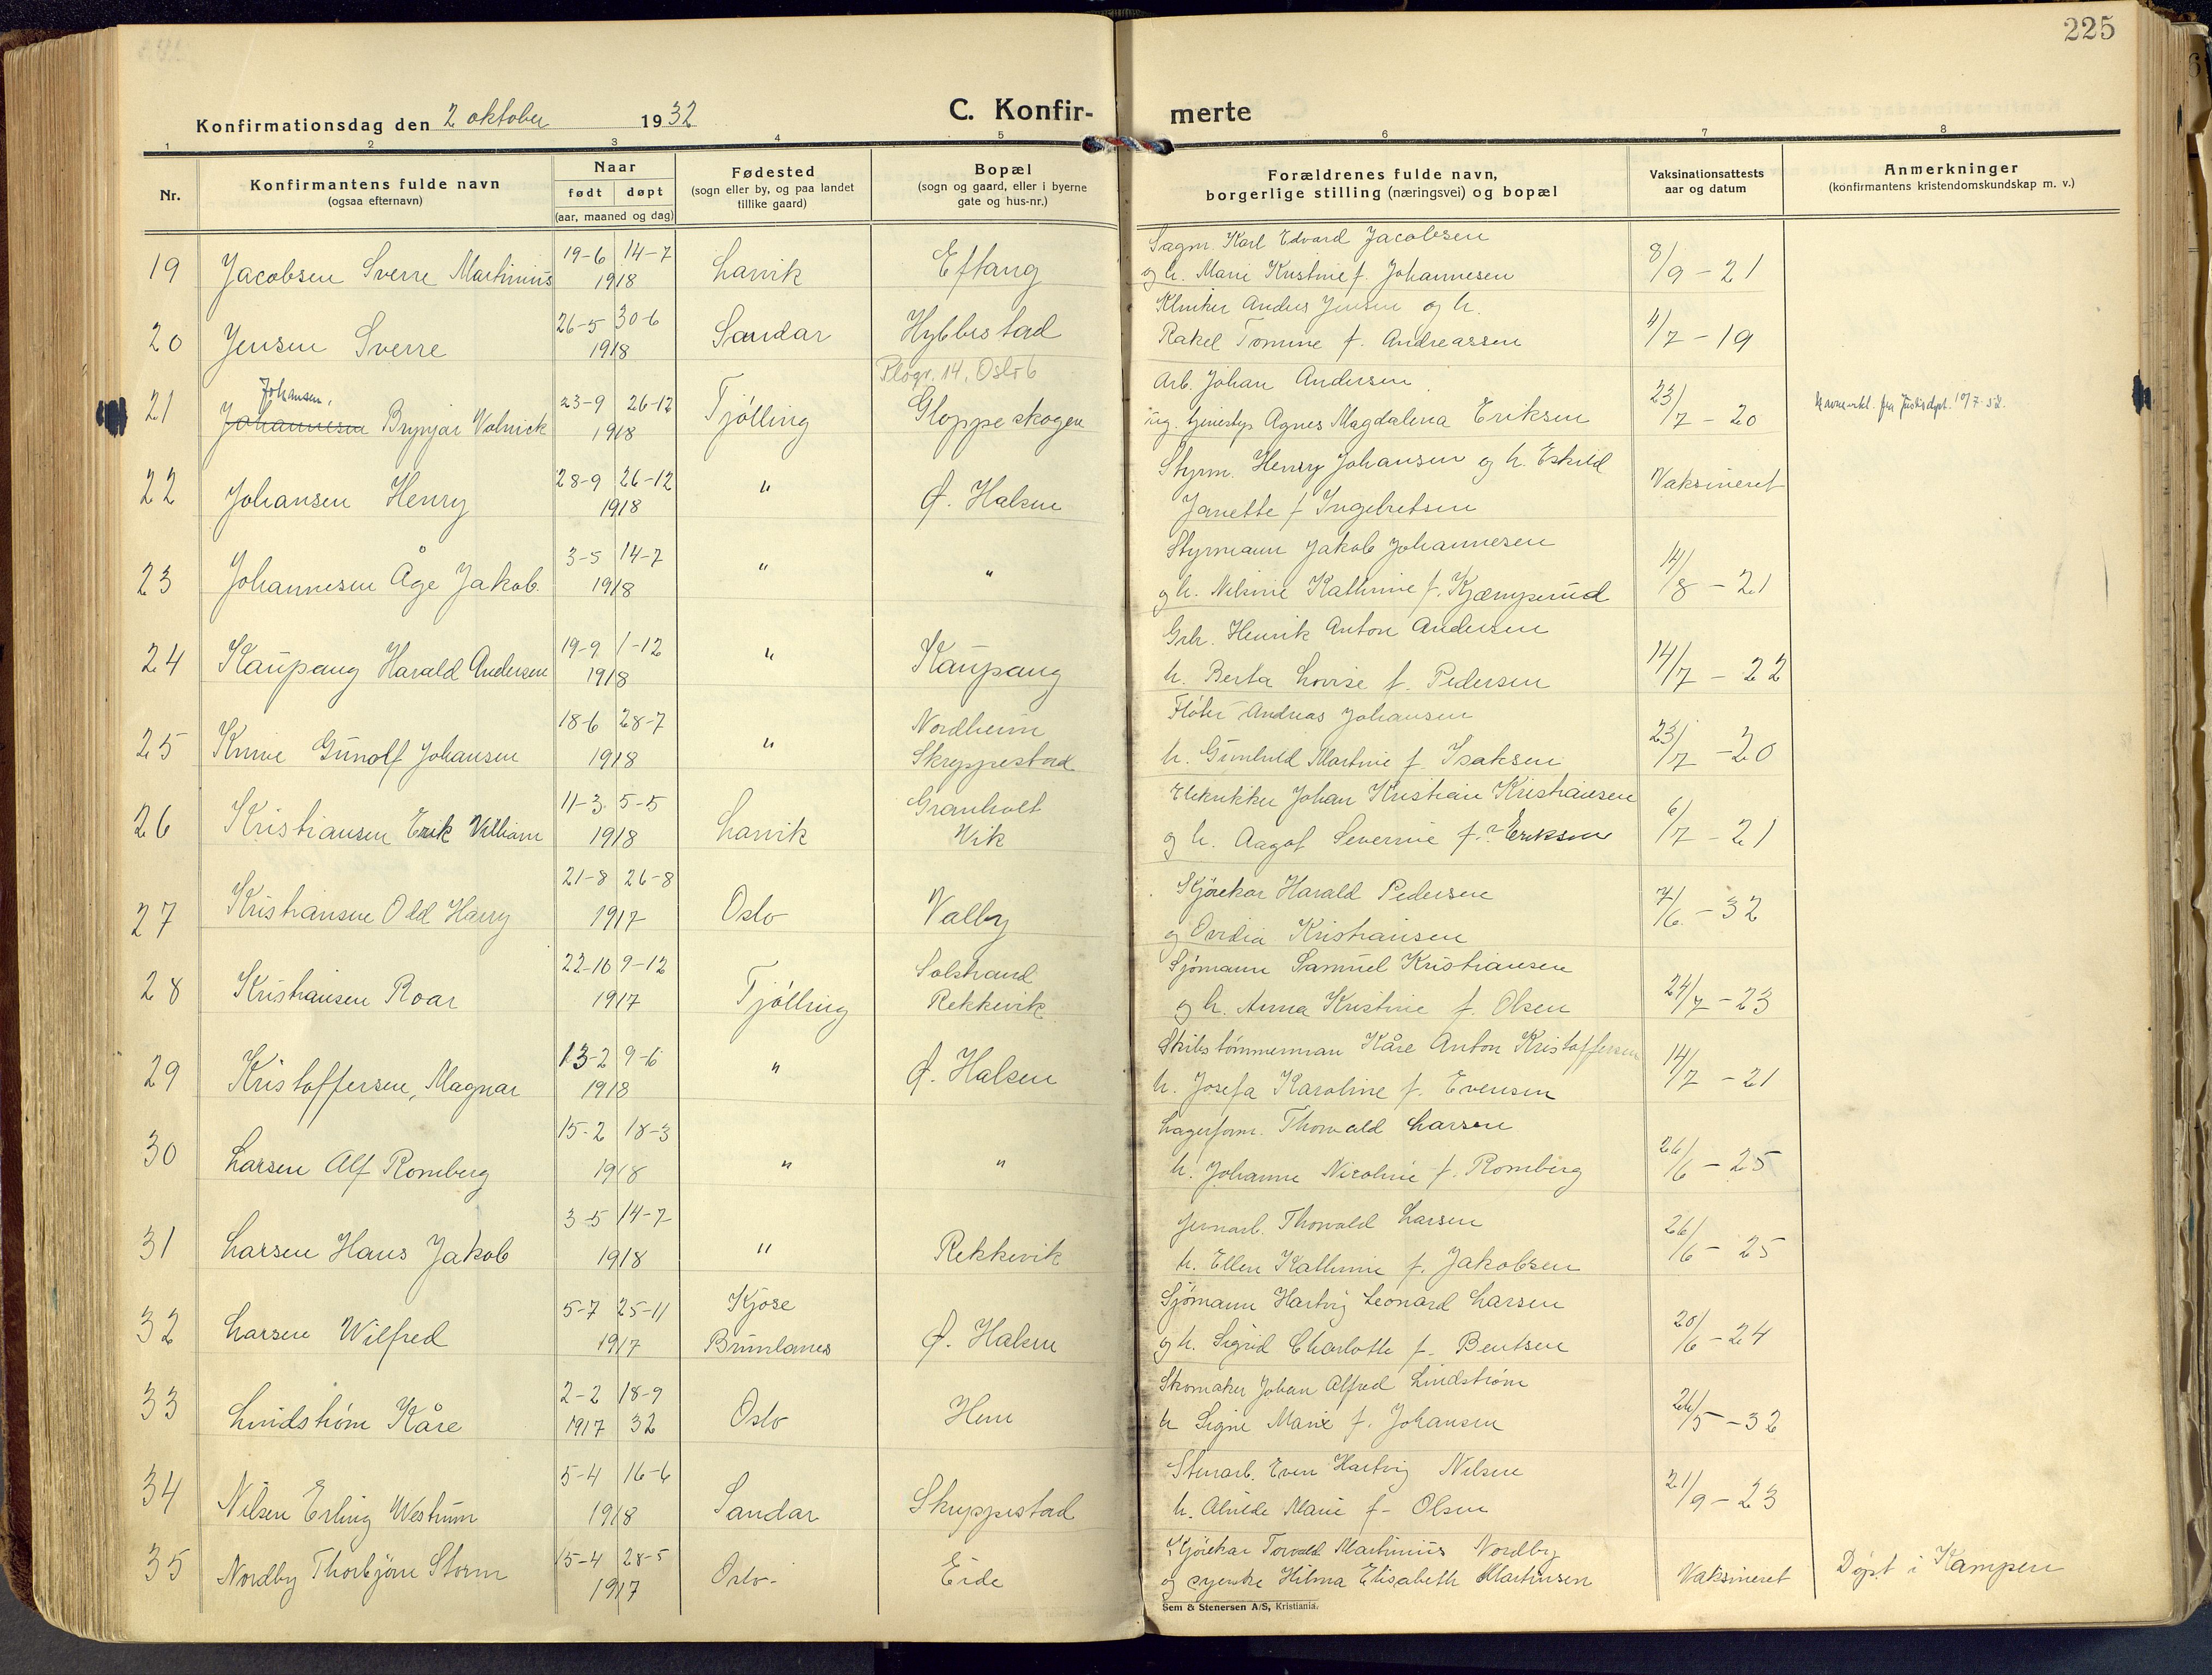 225
Konfirmationsdag den 2 oktober 1932
C. Konfir-
merte
1 2 3 4 5 6 7 8
Nr.
Konfirmantens fulde navn
(ogsaa efternavn)
Naar
født døpt
(aar, maaned og dag)
Fødested
(sogn eller by, og paa landet
tillike gaard)
Bopæl
(sogn og gaard, eller i byerne
gate og hus-nr.)
Forældrenes fulde navn,
borgerlige stilling (næringsvei) og bopæl
Vaksinationsattests
aar og datum
Anmerkninger
(konfirmantens kristendomskundskap m. v.)
19 Jacobsen Sverre Martinius 19-6 14-7 1918 Larvik Eftang
Sagm. Karl Edvard Jacobsen
og h. Marie Kristine f. Johannesen
8/9 - 21
20 Jensen Sverre 26-5 30-6 1918 Sandar Hybbestad
Anders Jensen og h.
Rakel Tomine f. Andreassen
4/7 - 19
Plogv. 14, Oslo
Johansen,
21 Johannesen Brynjar Volrick 23-9 26-12 1918 Tjølling Gloppeskogen
Arb. Johan Andersen
ug. tjenestep. Agnes Magdalena Eriksen
23/7 - 20
22 Johansen Henry 28-9 26-12 1918 " Ø. Halsen
Styrm. Henry Johansen og h. Eskild
Janette f Ingebretsen
Vaksineret
23 Johannesen Åge Jakob. 3-5 14-7 1918 " "
Styrmann Jakob Johannesen
og h. Nilsine Kathrine f. Kjæmperud
14/8 - 21
24 Kaupang Harald Andersen 19-9 1-12 1918 " Kaupang
Gbr. Henrik Anton Andersen
h. Berta Lovise f. Pedersen
14/7 - 22
25 Gunolf Johansen 18-6 28-7 1918 " Nordheim
Skreppestad
Fløter Andreas Johansen
h. Gunhild Martine f. Isaksen
23/7 - 20
26 Kristiansen Erik William 11-3 5-5 1918 Larvik Granholt
Wik
Elektriker Johan Kristian Kristiansen
og h. Aagot Severine f. ? Eriksen
6/7 - 21
27 Kristiansen Odd Harry 21-8 26-8 1917 Oslo Valby
Kjørekar Harald Pedersen
og Ovidia Kristiansen
7/6 - 32
28 Kristiansen Roar 22-10 9-12 1917 Tjølling Solstrand
Rekkevik
Sjømann Samuel Kristiansen
og h. Anna Kristine f. Olsen
24/7 - 23
29 Kristoffersen, Magnar 13-2 9-6 1918 " Ø. Halsen
Skibstømmerman Kåre Anton Kristoffersen
h. Josefa Karoline f. Evensen
14/7 - 21
30 Larsen Alf Romberg 15-2 18-3 1918 " "
Lagerform. Thorvald Larsen
h. Johanne Nicoline f. Romberg
26/6 - 25
31 Larsen Hans Jakob 3-5 14-7 1918 " Rekkevik
Jernarb. Thorvald Larsen
h. Ellen Kathrine f. Jakobsen
26/6 - 25
32 Larsen Wilfred 5-7 25-11 1917 Kjose
Brunlanes Ø. Halsen
Sjømann Hartvig Leonard Larsen
og h. Sigrid Charlotte f. Bentsen
20/6 - 24
33 Lindstrøm Kåre 2-2 18-9 1917 32 Oslo Hem
Skomaker Johan Alfred Lindstrøm
h Signe Marie f. Johansen
26/5 - 32
34 Nilsen Erling Westrum 5-4 16-6 1918 Sandar Skreppestad
Stenarb. Even Hartvig Nilsen
h. Alvilde Marie f. Olsen
21/9 - 23
35 Nordby Thorbjørn Storm 15-4 28-5 1917 Oslo - Eide
Kjørekar Torvald Martinius Nordby
og syerske Hilma Elisabeth Martinsen
Vaksineret
Døpt i Kampen
Sem & Stenersen A/S, Kristiania.